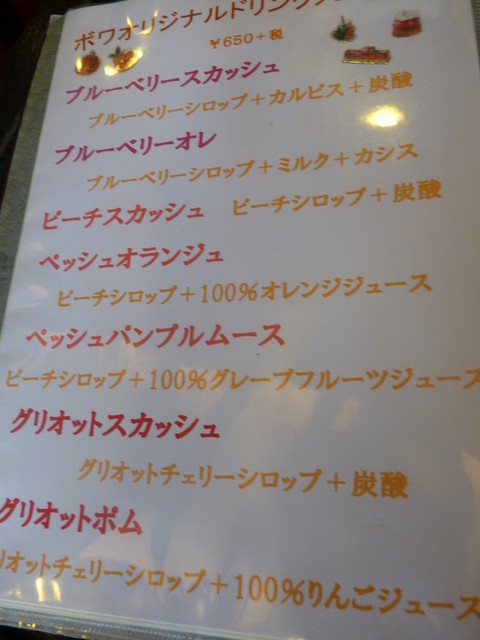 ボワオリジナルドリンク
￥650＋税
ブルーベリースカッシュ
ブルーベリーシロップ＋カルピス＋炭酸
ブルーベリーオレ
ブルーベリーシロップ＋ミルク＋カシス
ピーチスカッシュ ピーチシロップ＋炭酸
ペッシュオランジュ
ピーチシロップ＋100％オレンジジュース
ペッシュパンプルムース
ピーチシロップ＋100％グレープフルーツジュース
グリオットスカッシュ
グリオットチェリーシロップ＋炭酸
グリオットポム
リオットチェリーシロップ＋100％りんごジュース